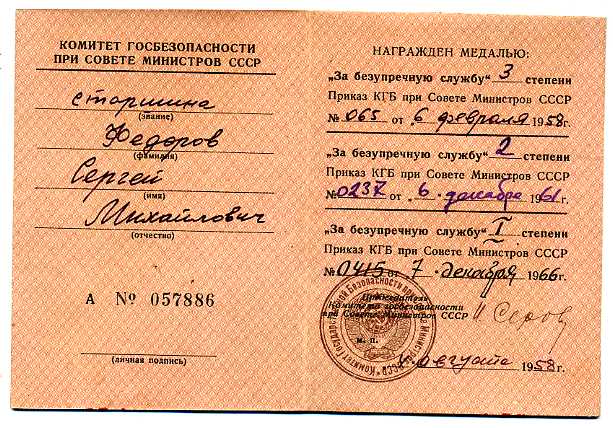 КОМИТЕТ ГОСБЕЗОПАСНОСТИ
ПРИ СОВЕТЕ МИНИСТРОВ СССР
старшина
(звание)
Федоров
(фамилия)
Сергей
(имя)
Михайлович
(отчество)
А № 057886
(личная подпись)
НАГРАЖДЕН МЕДАЛЬЮ:
„За безупречную службу“ 3 степени
Приказ КГБ при Совете Министров СССР
№ 065 от „6 февраля 1958г.
„За безупречную службу“ 2 степени
Приказ КГБ при Совете Министров СССР
№ 0237 от „6 декабря 1961г.
„За безупречную службу“ I степени
Приказ КГБ при Совете Министров СССР
№ 0415 от 7 декабря 1966г.
Председатель
Комитета госбезопасности
при Совете Министров СССР И Серов
М. П.
августа 1958г.